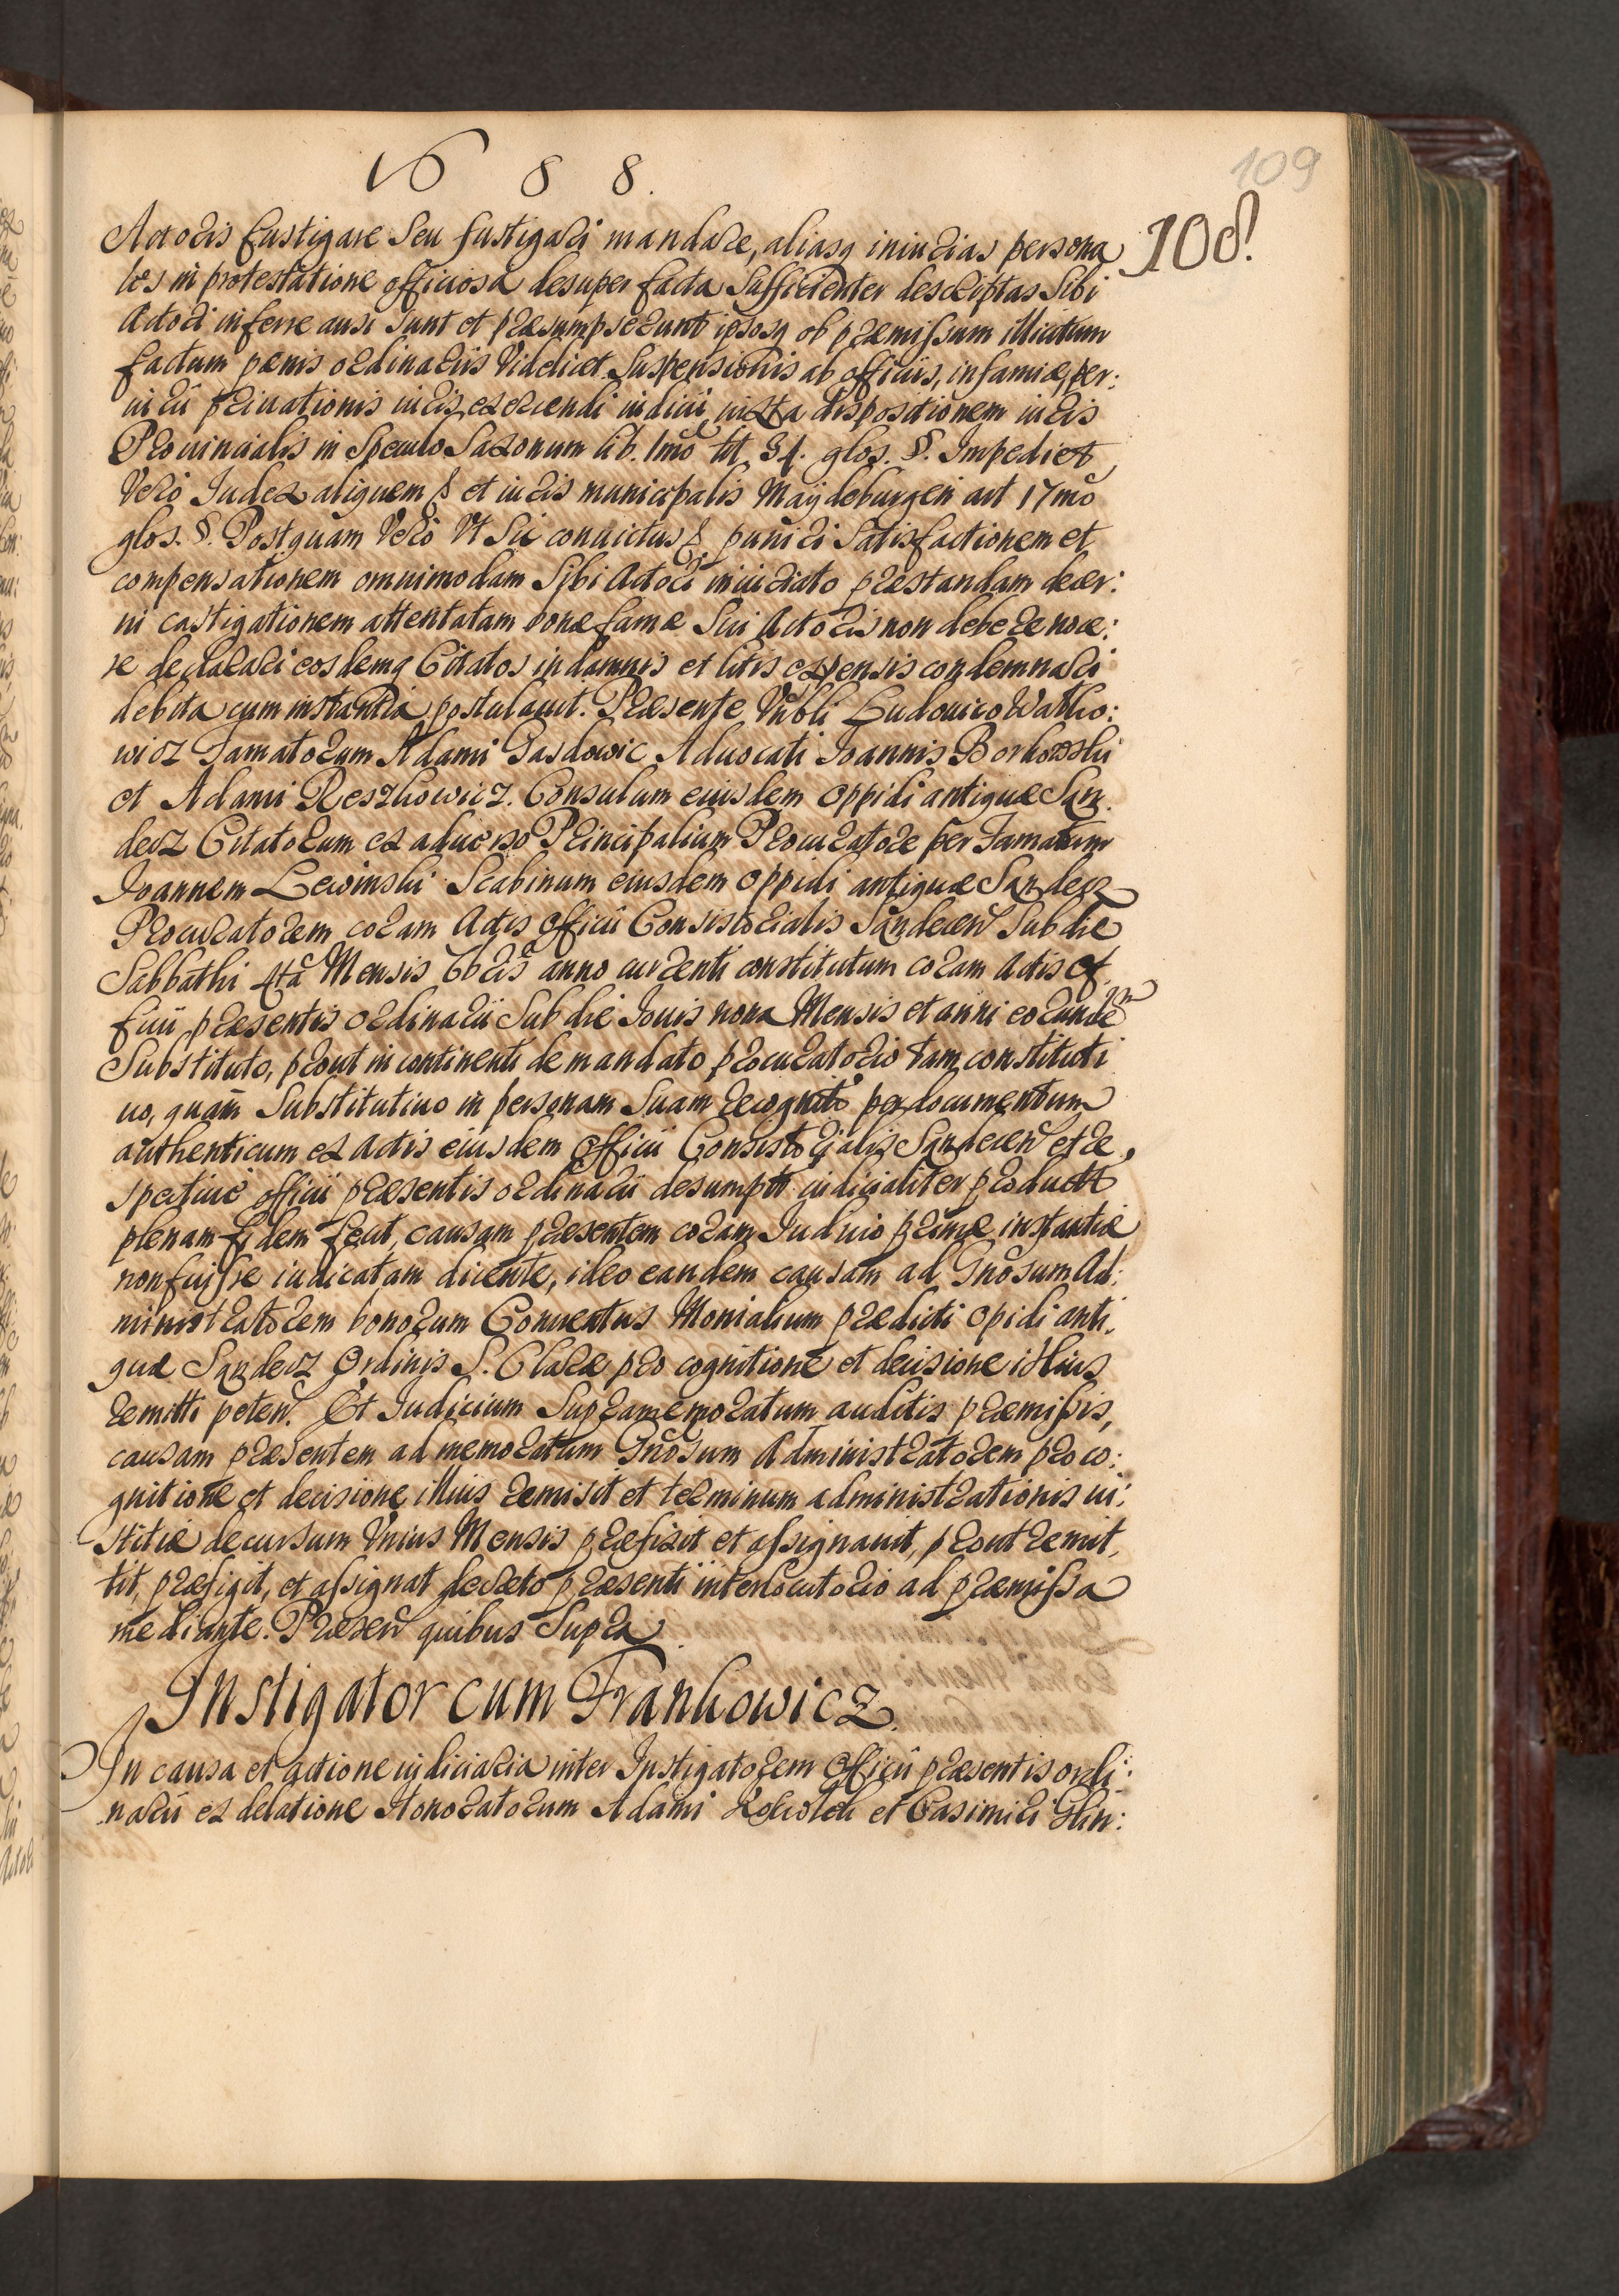 1688.
109
108.
Actoris fustigare seu fustigari mandare, aliasq iniurias persona
les in protestatione officiosa desuper facta sufficienter descriptas sibi
Actori inferre ausi sunt et præsumpserunt ipsosq ob præmissum illicitum
factum pænis ordinariis videlicet suspensionis ab officiis, infamiæ, per:
iurii priuationis iuris exercendi iudicii, iuxta dispositionem iuris
Prouincialis in Speculo Saxonum lib. 1mo tit 31. glos. §. Impediet
Vero Judex aliquem & et iuris municipalis Maydeburgen art 17mo
glos. §. Postquam Vero Vt sic conuictus & puniri satisfactionem et
compensationem omnimodam Sibi Actori iniuriato præstandam decer:
ni castigationem attentatam bonæ famæ sui Actoris non debere noce:
re declarari eosdemq Citatos in damnis et litis expensis condemnari
debita cum instantia postulauit. Præsente Nobli Ludouico Watko:
wicz Famatorum Adami Pasdowic Aduocati Joannis Borkowski
et Adami Reszkowicz. Consulum eiusdem oppidi antiquæ San
decz Citatorum ex aduerso Principalium Procuratore per Famatum
Joannem Lewinski Scabinum eiusdem oppidi antiquæ Sandecz
Procuratorem coram Actis officii Consistorialis Sandecen sub die
Sabbathi 4ta Mensis 7bris anno currenti constitutum coram Actis of
ficii præsentis ordinarii sub die Jouis nona Mensis et anni eorundem
Substituto, prout in continenti de mandato procuratorio tam constituti
uo, quam Substitutiuo in personam suam recognito per documentum
authenticum ex actis eiusdem officii Consistorialis Sandecen et re,
spectiue officii præsentis ordinarii desumptt iudicialiter productt
plenam fidem fecit, causam præsentem coram Judicio primæ instantiæ
non fuisse iudicatam dicente, ideo eandem causam ad Gnosum Ad:
ministratorem bonorum Conuentus Monialium prædicti opidi anti,
quæ Sandecz Ordinis S. Claræ pro cognitione et decisione illius
remitti peten. Et Judicium Supramemoratum auditis præmissis,
causam præsentem ad memoratum Gnosum Administratorem pro co:
gnitione et decisione illius remisit et terminum administrationis iu:
stitiæ decursum Vnius Mensis præfixit et assignauit, prout remit,
tit, præfigit, et assignat decreto præsenti interlocutorio ad præmissa
mediante. Præsen quibus Supra.
Instigator cum Frankowicz.
In causa et actione iudiciaria inter Instigatorem Officii præsentis ordi:
narii ex delatione Honoratorum Adami et Casimiri Glin: